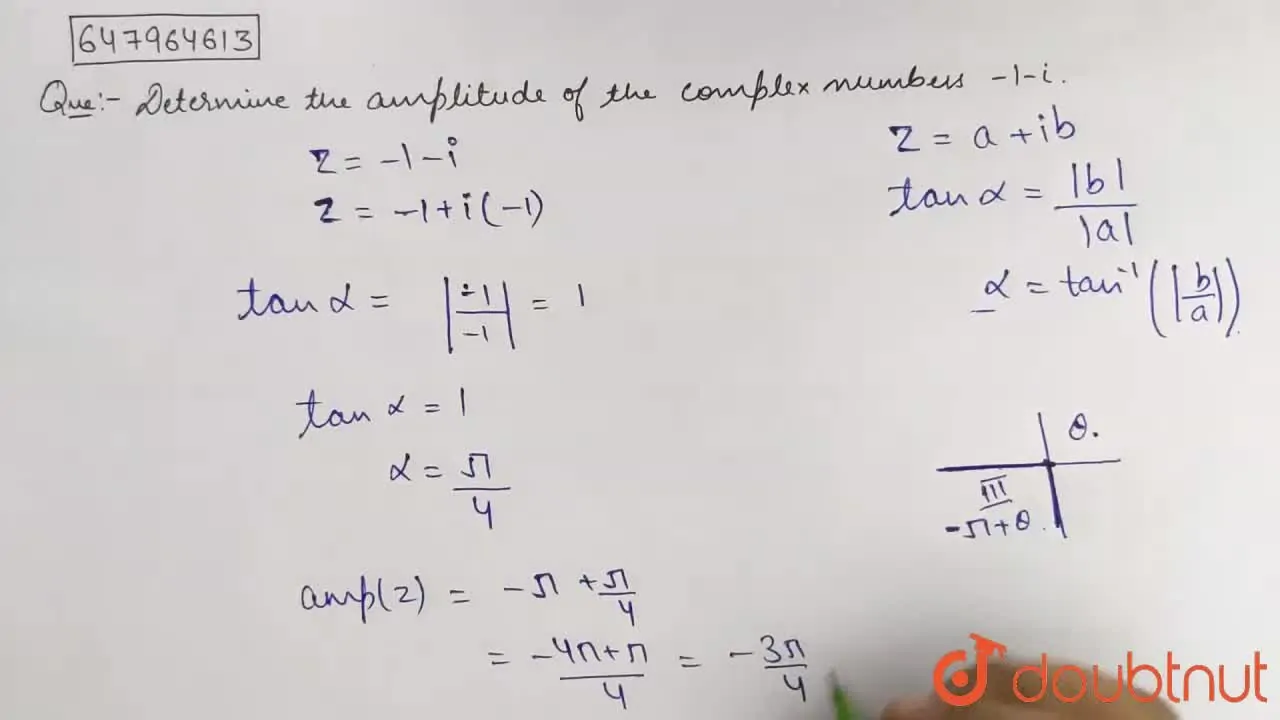 647964613
Que:- Determine the amplitude of the complex numbers -1-i.
z = -1-i
z = -1+i(-1)
tan α = |-1/-1| = 1
tan α = 1
α = π/4
amp(z) = -π + π/4
= -4π+π/4 = -3π/4
z = a+ib
tan α = |b|/|a|
α = tan⁻¹(|b/a|)
θ.
III
-π+θ
doubtnut